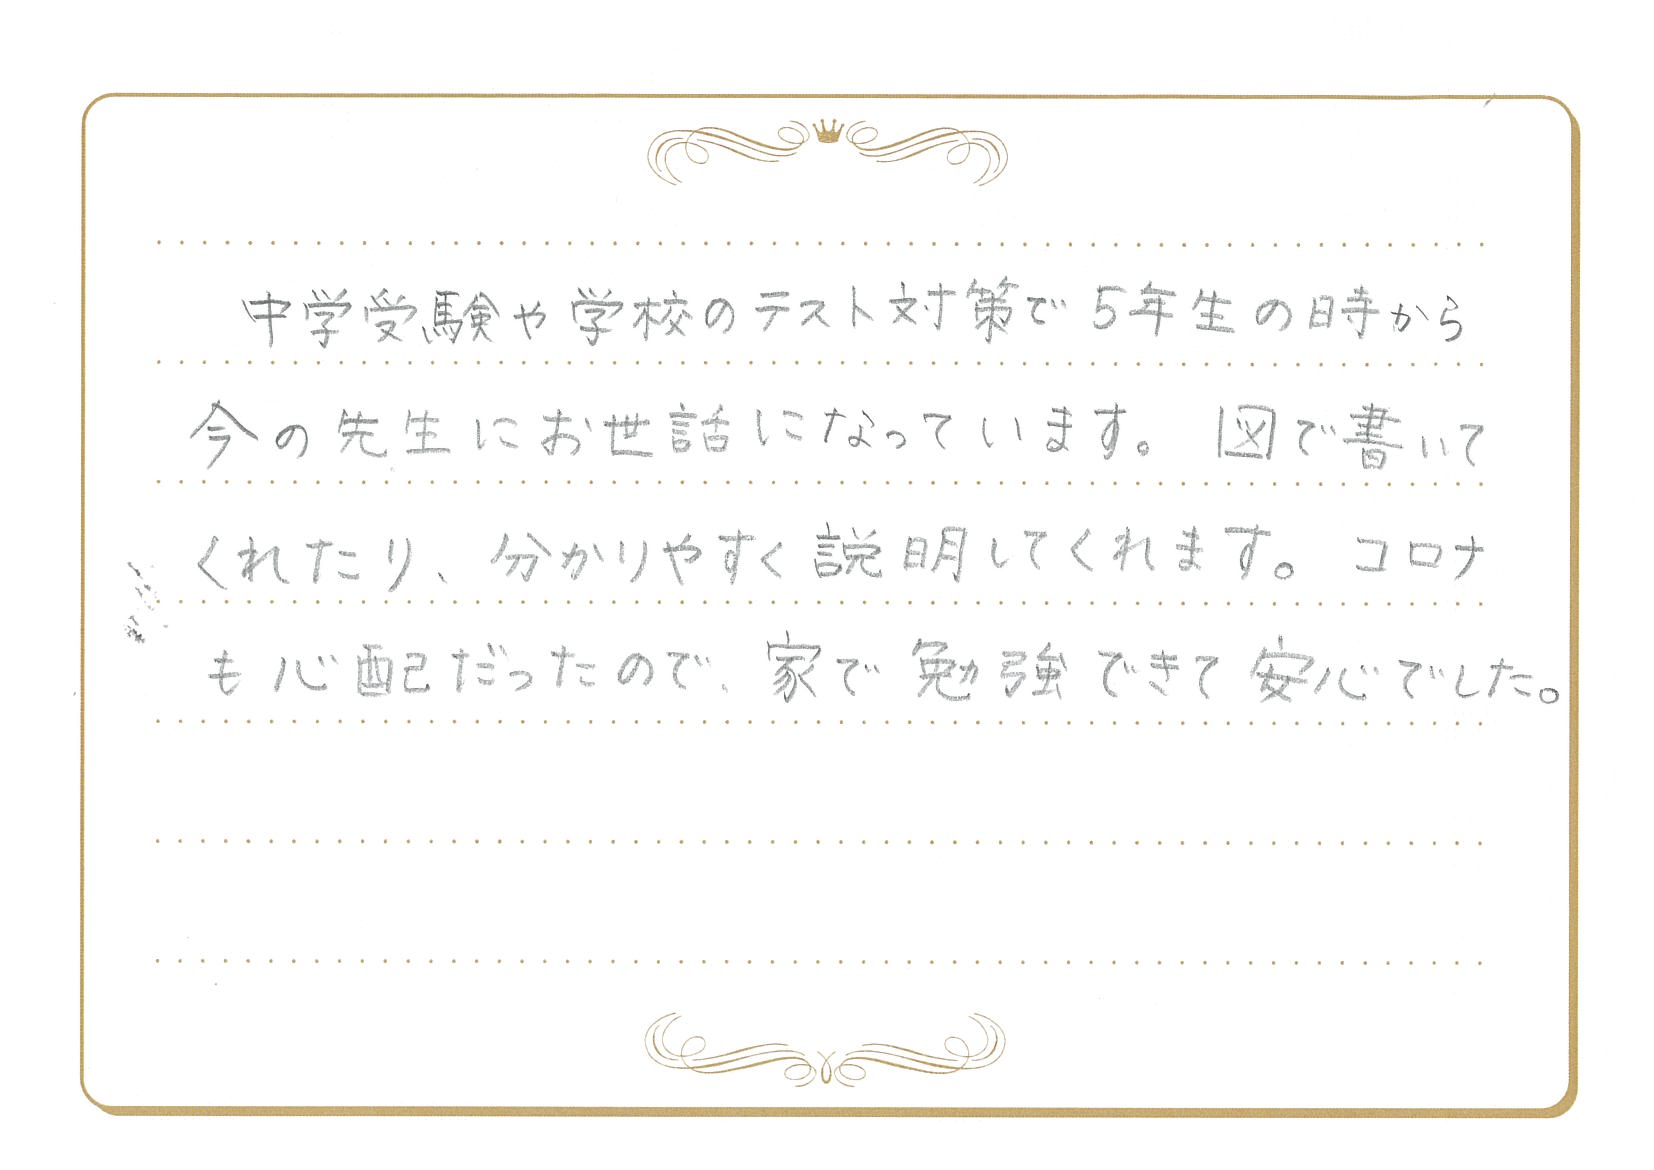 中学受験や学校のテスト対策で5年生の時から
今の先生にお世話になっています。図で書いて
くれたり、分かりやすく説明してくれます。コロナ
も心配だったので、家で勉強できて安心でした。